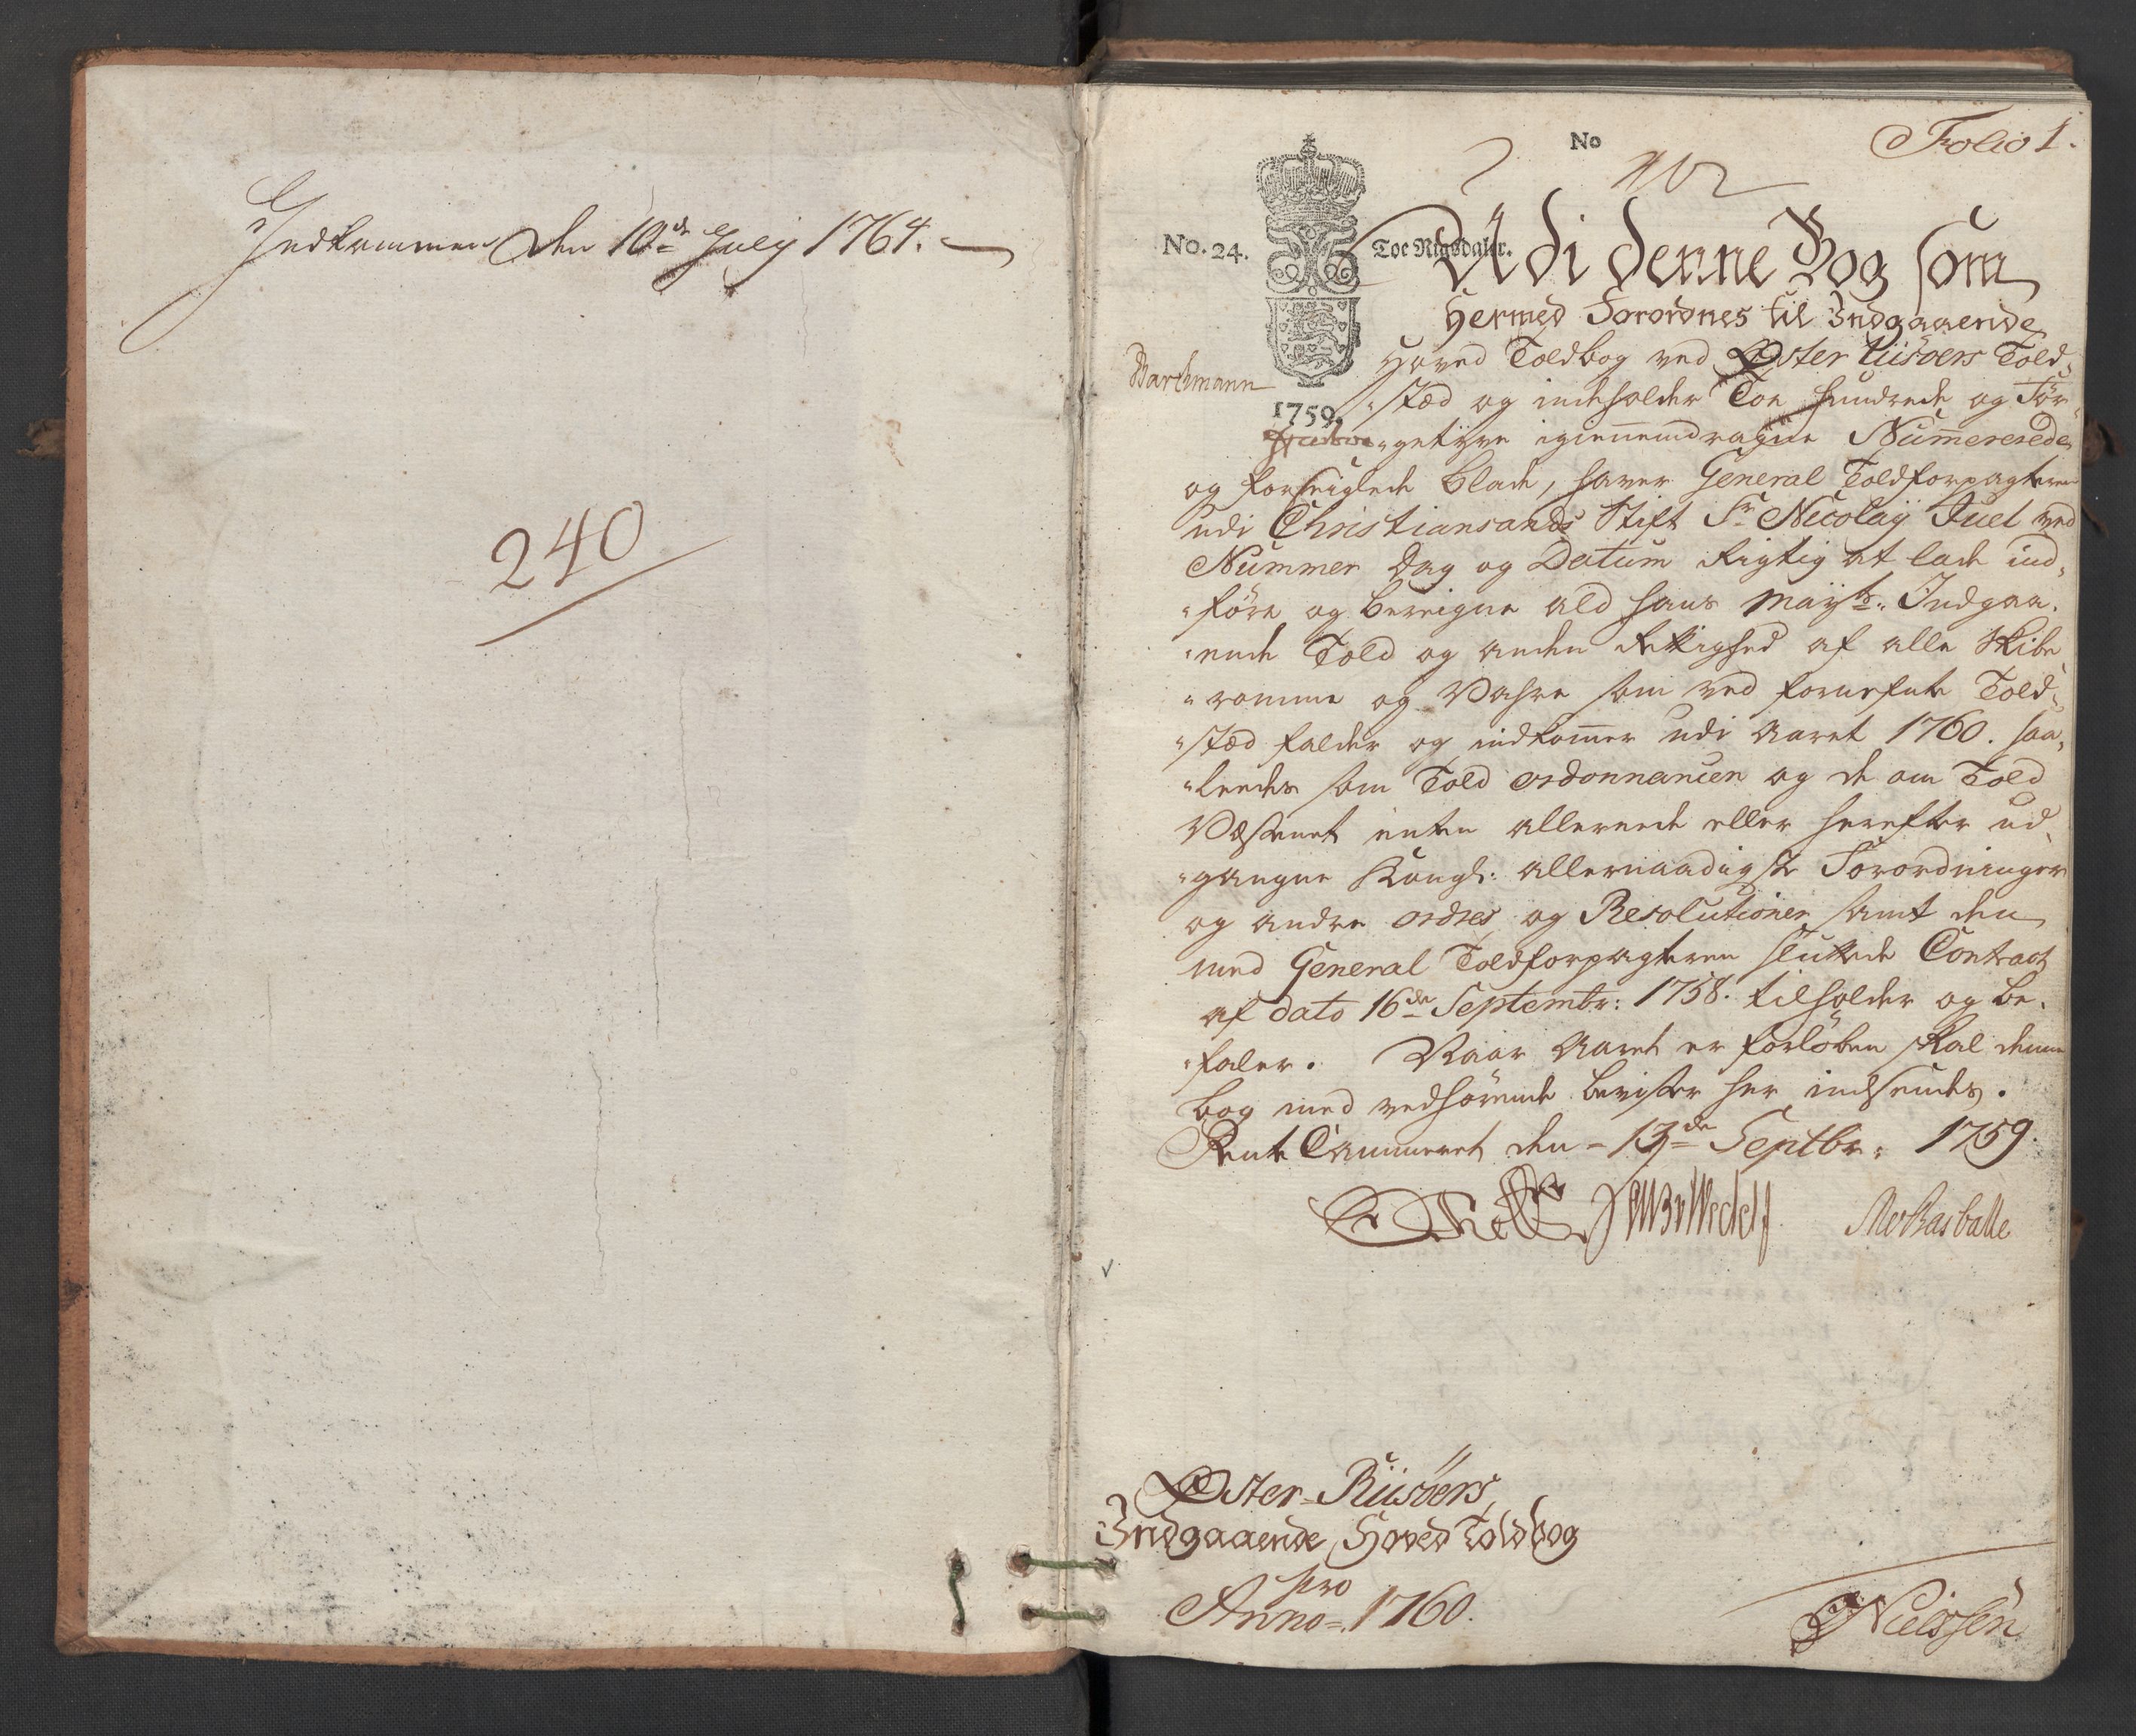 Indkommen den 10de July 1764.
240
No
Folio 1.
No. 24.
Toe Rigsdaler.
Udi denne Bog som
Hermed Forordnes til Indgaaende
Hoved Toldbog ved Øster Riisöers Told-
Barchmann
"stæd og indeholder Toe hundrede og För-
1759.
"getyve igiennemdragne Nummererede
og forseiglede blade, haver General Toldforpagteren
udi Christiansands Stift Sr Nicolaÿ Juel ved
Nummer Dag og Datum Rigtig at lade ind-
"före og bereigne ald hans Maÿts: Indgaa-
"ende Told og anden Rettighed af alle Skibe
"romme og Vahre som ved fornefnte Told-
"stæd falder og indkommer udi Aaret 1760. saa-
"leedes som Told ordonnancen og de om Told
Væsenet enten allereede eller herefter ud-
"gangne Kongl: allernaadigste Forordninger
og andre ordres og Resolutioner samt den
med General Toldforpagteren sluttede Contract
af dato 16de Septembr: 1758. tilholder og be-
"faler. Naar Aaret er forlöben skal denne
bog med vedhörende beviiser her indsendes.
Rente Cammeret den 13de Septbr: 1759.
Øster-Riisöers
Indgaaende Hoved Toldbog
pro
Anno 1760.
Nielssen